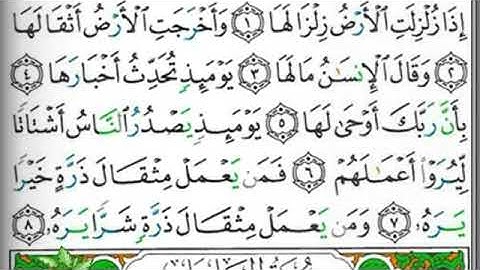 إِذَا زُلْزِلَتِ ٱلْأَرْضُ زِلْزَالَهَا ١ وَأَخْرَجَتِ ٱلْأَرْضُ أَثْقَالَهَا
٢ وَقَالَ ٱلْإِنسَٰنُ مَالَهَا ٣ يَوْمَئِذٍ تُحَدِّثُ أَخْبَارَهَا ٤
بِأَنَّ رَبَّكَ أَوْحَىٰ لَهَا ٥ يَوْمَئِذٍ يَصْدُرُ ٱلنَّاسُ أَشْتَاتًا
لِّيُرَوْا۟ أَعْمَٰلَهُمْ ٦ فَمَن يَعْمَلْ مِثْقَالَ ذَرَّةٍ خَيْرًا
يَرَهُۥ ٧ وَمَن يَعْمَلْ مِثْقَالَ ذَرَّةٍ شَرًّا يَرَهُۥ ٨